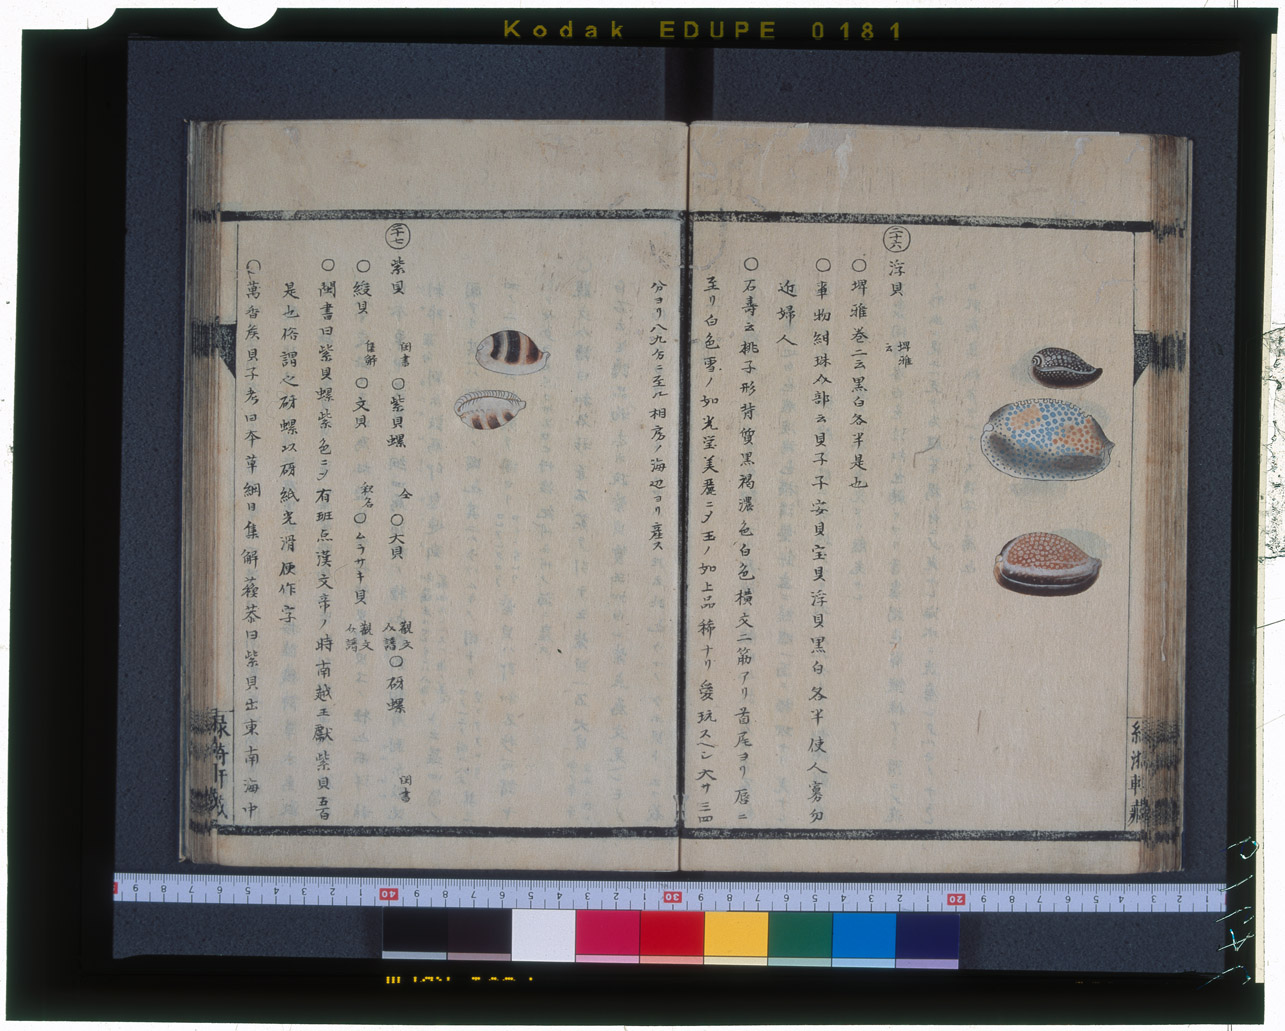 Kodak EDUPE 0181
二十六
浮貝 埤雅云
○埤雅巻二云黒白各半是也
○事物紺珠介部云貝子子安貝宝貝浮貝黒白各半使人寡勿
近婦人
○石寿云桃子形背質黒褐濃色白色横文二筋アリ首尾ヨリ唇ニ
至リ白色雪ノ如光莹美麗ニ乄玉ノ如上品稀ナリ愛玩スヘシ大サ三四
分ヨリ八九分ニ至ル相房ノ海辺ヨリ産ス
二十七
紫貝 閩書 ○紫貝螺 仝 ○大貝 觀文介譜 ○砑螺 閩書
○綬貝 集解 ○文貝 釈名 ○ムラサキ貝 觀文介譜
○閩書曰紫貝螺紫色ニ乄有班点漢文帝ノ時南越王獻紫貝五百
是也俗謂之砑螺以砑紙光滑便作字
○萬香矦貝子考曰本草綱目集解蘓恭曰紫貝出東南海中
40
30
20